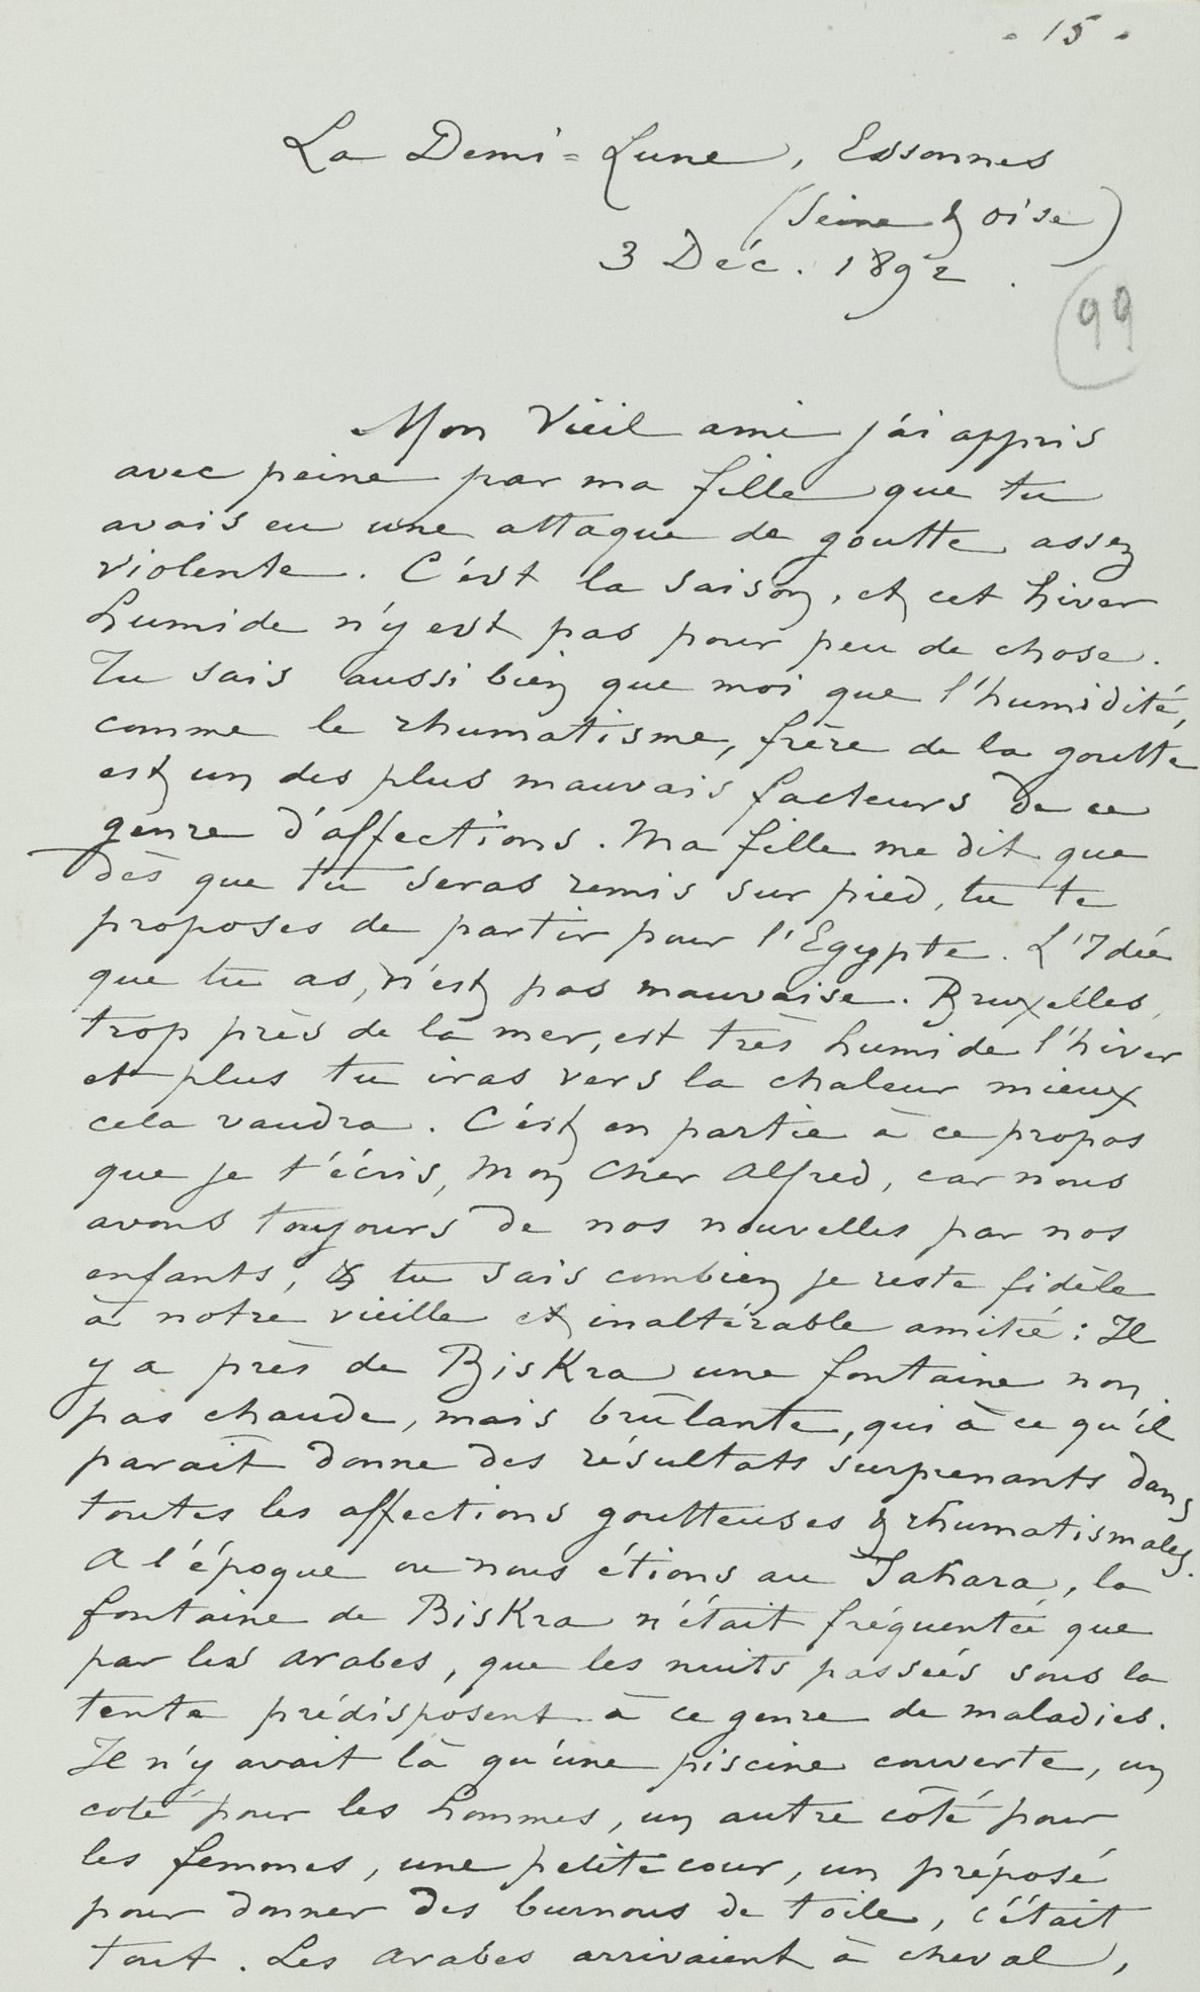 - 15 -
La Demi-Lune, Essonnes
(Seine & Oise)
3 Déc. 1892.
99
Mon Vieil ami j'ai appris
avec peine par ma fille que tu
avais eu une attaque de goutte assez
violente. C'est la saison, et cet hiver
humide n'y est pas pour peu de chose.
Tu sais aussi bien que moi que l'humidité,
comme le rhumatisme, frère de la goutte
est un des plus mauvais facteurs de ce
genre d'affections. Ma fille me dit que
dès que tu seras remis sur pied, tu te
proposes de partir pour l'Egypte. L'Idée
que tu as, n'est pas mauvaise. Bruxelles,
trop près de la mer, est très humide l'hiver
et plus tu iras vers la chaleur mieux
cela vaudra. C'est en partie à ce propos
que je t'écris, Mon Cher Alfred, car nous
avons toujours de nos nouvelles par nos
enfants, & tu sais combien je reste fidèle
à notre vieille et inaltérable amitié : Il
y a près de Biskra une fontaine non
pas chaude, mais brûlante, qui à ce qu'il
parait donne des résultats surprenants dans
toutes les affections goutteuses & rhumatismales.
A l'époque ou nous étions au Sahara, la
fontaine de Biskra n'était fréquentée que
par les arabes, que les nuits passées sous la
tente prédisposent à ce genre de maladies.
Il n'y avait là qu'une piscine couverte, un
coté pour les hommes, un autre côté pour
les femmes, une petite cour, un préposé
pour donner des burnous de toile, c'était
tout. Les arabes arrivaient à cheval,